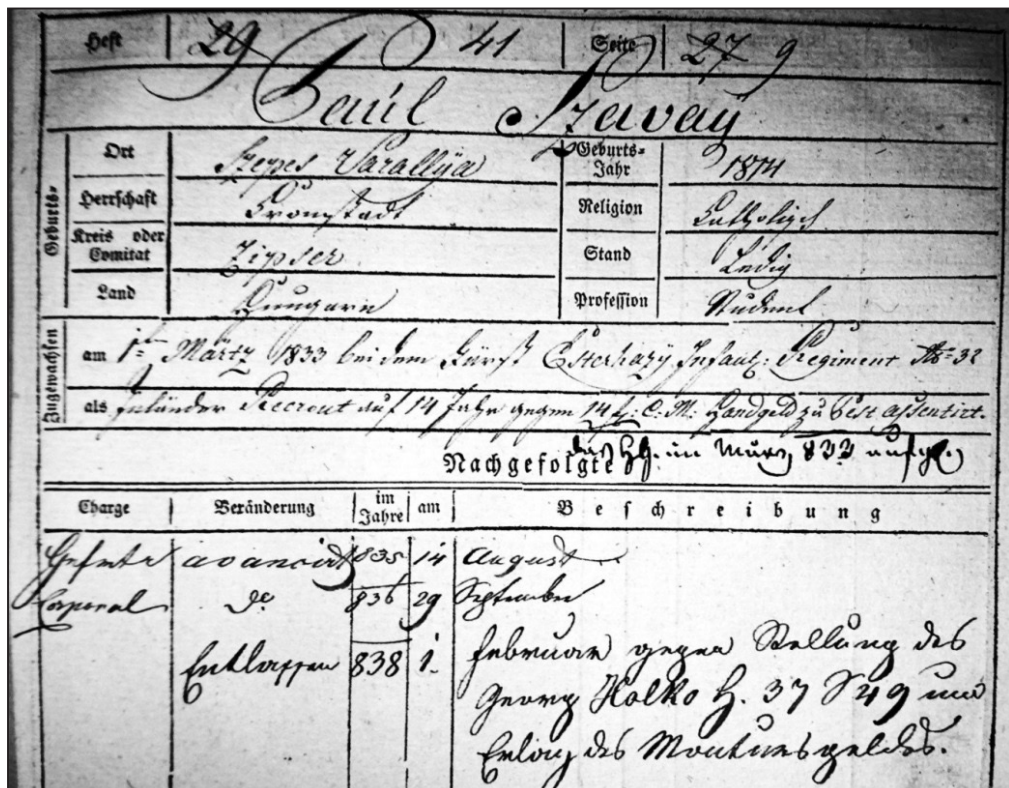 Heft 29 41 Seite 27 9
Paul Szavaÿ
Geburts-
Ort Szepes Varallÿa Geburts-Jahr 1814
Herrschaft Religion Catholisch
Kreis oder Comitat Zipser Stand Ledig
Land Hungarn Profession Student
Zugewachsen
am 1ten Märtz 1833 bei dem Fürst Esterhazÿ Infant: Regiment No 32
als Inländer Recrout auf 14 Jahr gegen 14 f: C: M: Handgeld zu Pest assentirt.
Nachgefolgte im März 833
Charge Veränderung im Jahre am Beschreibung
Gefreite avancirt 835 14 August
Corporal do 836 29 September
Entlassen 838 1. Februar gegen Stellung des
Georg Holko H. 37 S 49 und
Erlag des Monturs geldes.